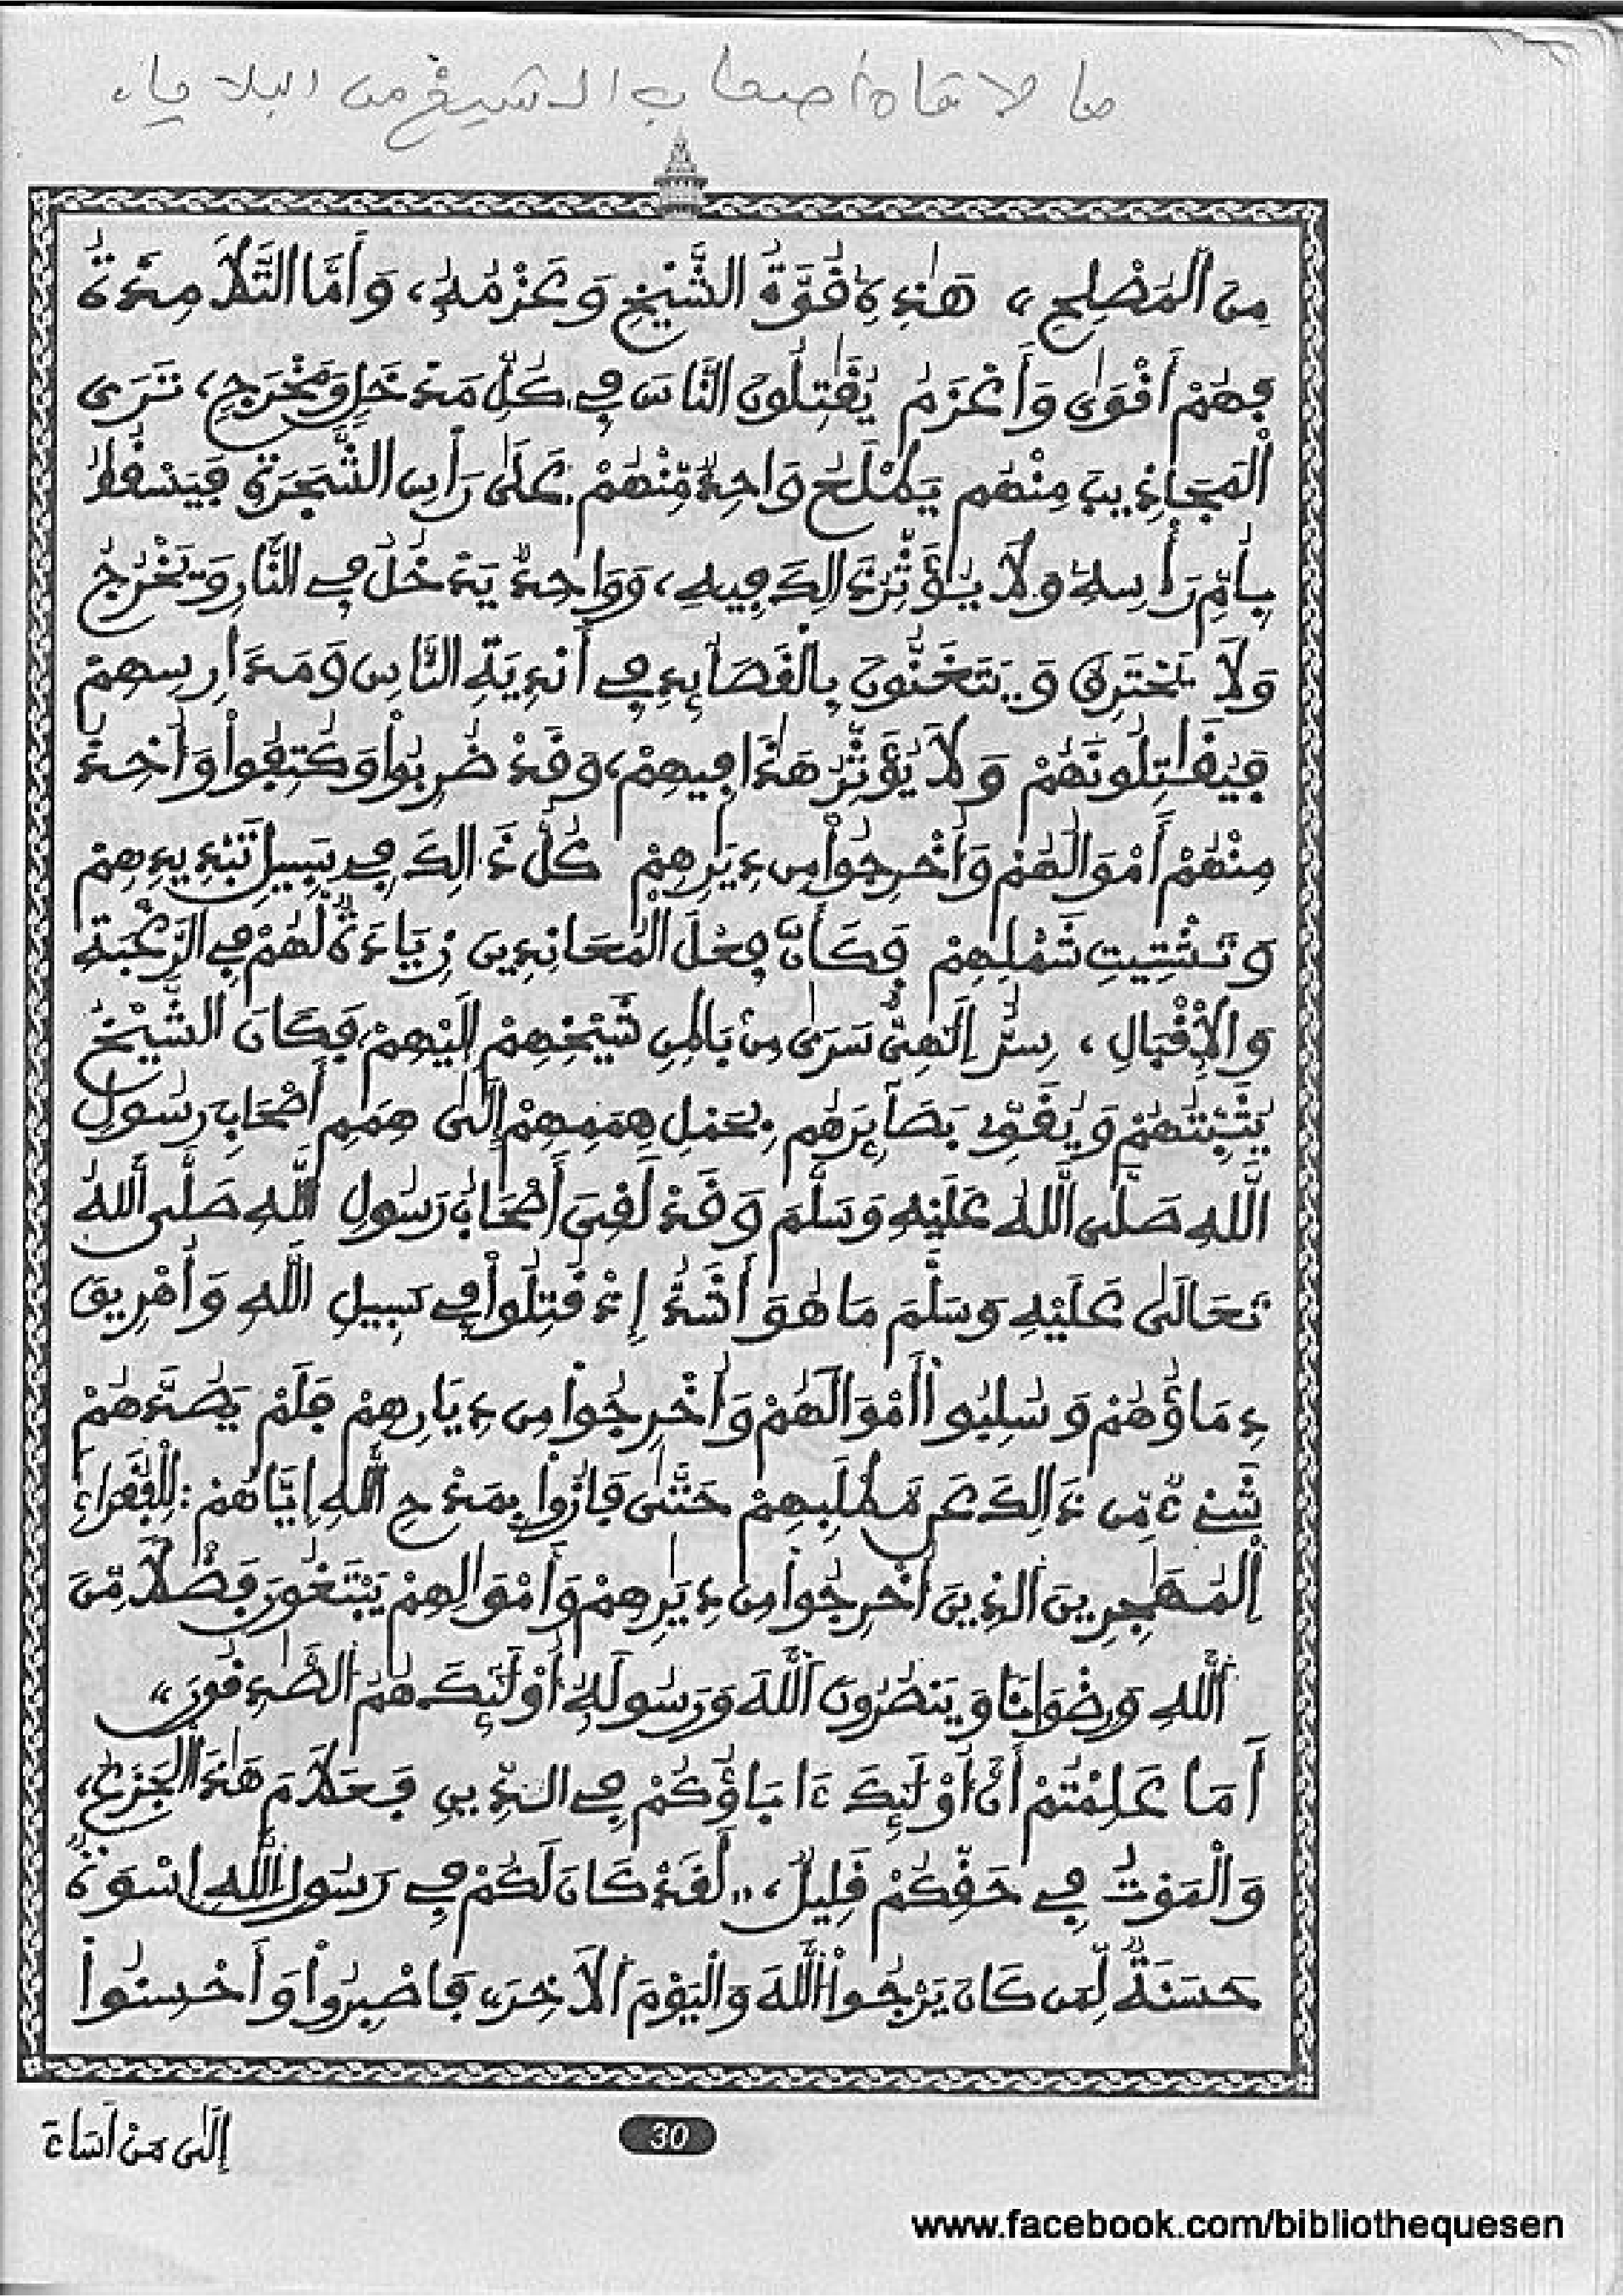 ما لاقاه أصحاب الشيخ من البلاياء
مِنَ ٱلْمُصْلِحِ،، هَٰذِهِۦ قُوَّةُ الشَّيْخِ وَعَزْمُهُۥ، وَأَمَّا التَّلَامِذَةُ
فَهُمْ أَقْوَىٰ وَأَعْزَمُ يُقَٰتِلُونَ النَّاسَ فِي كُلِّ مَدْخَلٍ وَمَخْرَجٍ، تَرَى
ٱلْمَجَاذِيبَ مِنْهُم يَطْلَعُ وَاحِدٌ مِّنْهُمْ عَلَىٰ رَأْسِ الشَّجَرَةِ فَيَسْقُطُ
بِأُمِّ رَأْسِهِۦ وَلَا يُؤَثِّرُ ذَالِكَ فِيهِ، وَوَاحِدٌ يَدْخُلُ فِي النَّارِ وَيَخْرُجُ
وَلَا يَحْتَرِقُ وَيَتَغَنَّوْنَ بِالْقَصَائِدِ فِي أَنْدِيَةِ النَّاسِ وَمَدَارِسِهِمْ
فَيُقَاتِلُونَهُمْ وَلَا يُؤَثِّرُ هَٰذَا فِيهِمْ، وَقَدْ ضُرِبُواْ وَكُتِفُواْ وَأُخِذَ
مِنْهُمْ أَمْوَالُهُمْ وَأُخْرِجُواْ مِن دِيَٰرِهِمْ كُلُّ ذَالِكَ فِي سَبِيلِ تَبْدِيدِهِمْ
وَتَشْتِيتِ شَمْلِهِمْ فَكَأَنَّ فِعْلَ الْمُعَانِدِينَ زِيَادَةٌ لَهُمْ فِي الرَّغْبَةِ
وَالْإِقْبَالِ، سِرٌّ إِلَٰهِيٌّ سَرَىٰ مِنْ بَاطِنِ شَيْخِهِمْ إِلَيْهِمْ، فَكَانَ الشَّيْخُ
يُثَبِّتُهُمْ وَيُقَوِّي بَصَآئِرَهُم بِحَمْلِ هِمَمِهِمْ إِلَىٰ هِمَمِ أَصْحَابِ رَسُولِ
اللَّهِ صَلَّى اللَّهُ عَلَيْهِ وَسَلَّمَ وَقَدْ لَقِيَ أَصْحَابُ رَسُولِ اللَّهِ صَلَّى اللَّهُ
تَعَالَىٰ عَلَيْهِ وَسَلَّمَ مَا هُوَ أَشَدُّ إِذْ قُتِلُواْ فِي سَبِيلِ اللَّهِ وَأُهْرِيقَ
دِمَاؤُهُمْ وَسُلِبُواْ أَمْوَالَهُمْ وَأُخْرِجُواْ مِن دِيَارِهِمْ فَلَمْ يَصُدَّهُمْ
شَيْءٌ مِّن ذَالِكَ عَن مَطْلَبِهِمْ حَتَّىٰ فَازُواْ بِمَدْحِ اللَّهِ إِيَّاهُمْ: لِلْفُقَرَآءِ
اِلْمُهَٰجِرِينَ اَلذِينَ أُخْرِجُواْ مِن دِيَٰرِهِمْ وَأَمْوَالِهِمْ يَبْتَغُونَ فَضْلًا مِّنَ
اَللَّهِ وَرِضْوَانًا وَيَنصُرُونَ اَللَّهَ وَرَسُولَهُۥ أُوْلَٰٓئِكَ هُمُ الصَّٰدِقُونَ،،
أَمَا عَلِمْتُمْ أَنَّ أُوْلَٰئِكَ ءَابَاؤُكُمْ فِي الدِّينِ فَعَلَامَ هَٰذَا الْجَزَعُ،
وَالْمَوْتُ فِي حَقِّكُمْ قَلِيلٌ، ،،لَقَدْ كَانَ لَكُمْ فِي رَسُولِ اللَّهِ إِسْوَةٌ
حَسَنَةٌ لِّمَن كَانَ يَرْجُواْ اللَّهَ وَالْيَوْمَ اَلَاخِرَ،، فَاصْبِرُواْ وَأَحْسِنُواْ
إِلَىٰ مَنْ أَسَاءَ
30
www.facebook.com/bibliothequesen